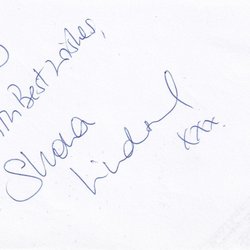 With Best Wishes,
Shona
Lindsay
xxx.